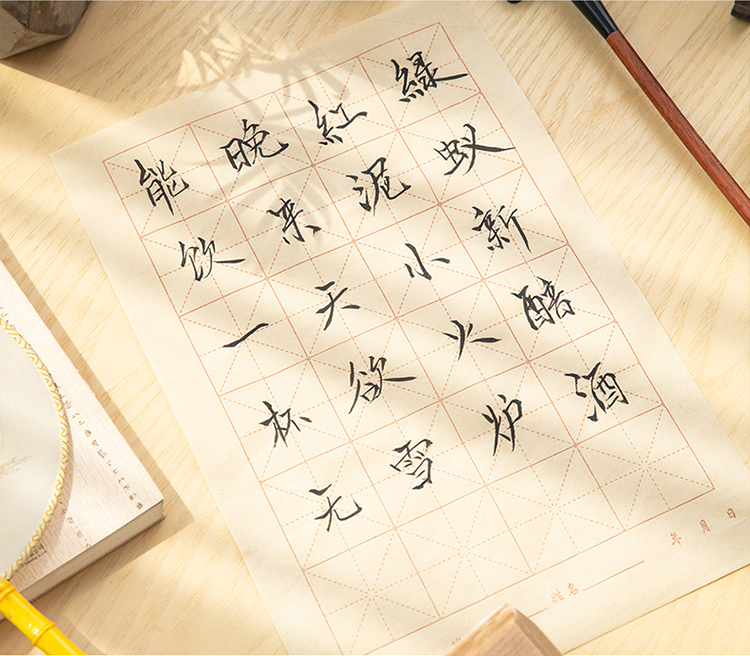 緑蚁新醅酒
紅泥小火炉
晚来天欲雪
能饮一杯无
姓名
年 月 日